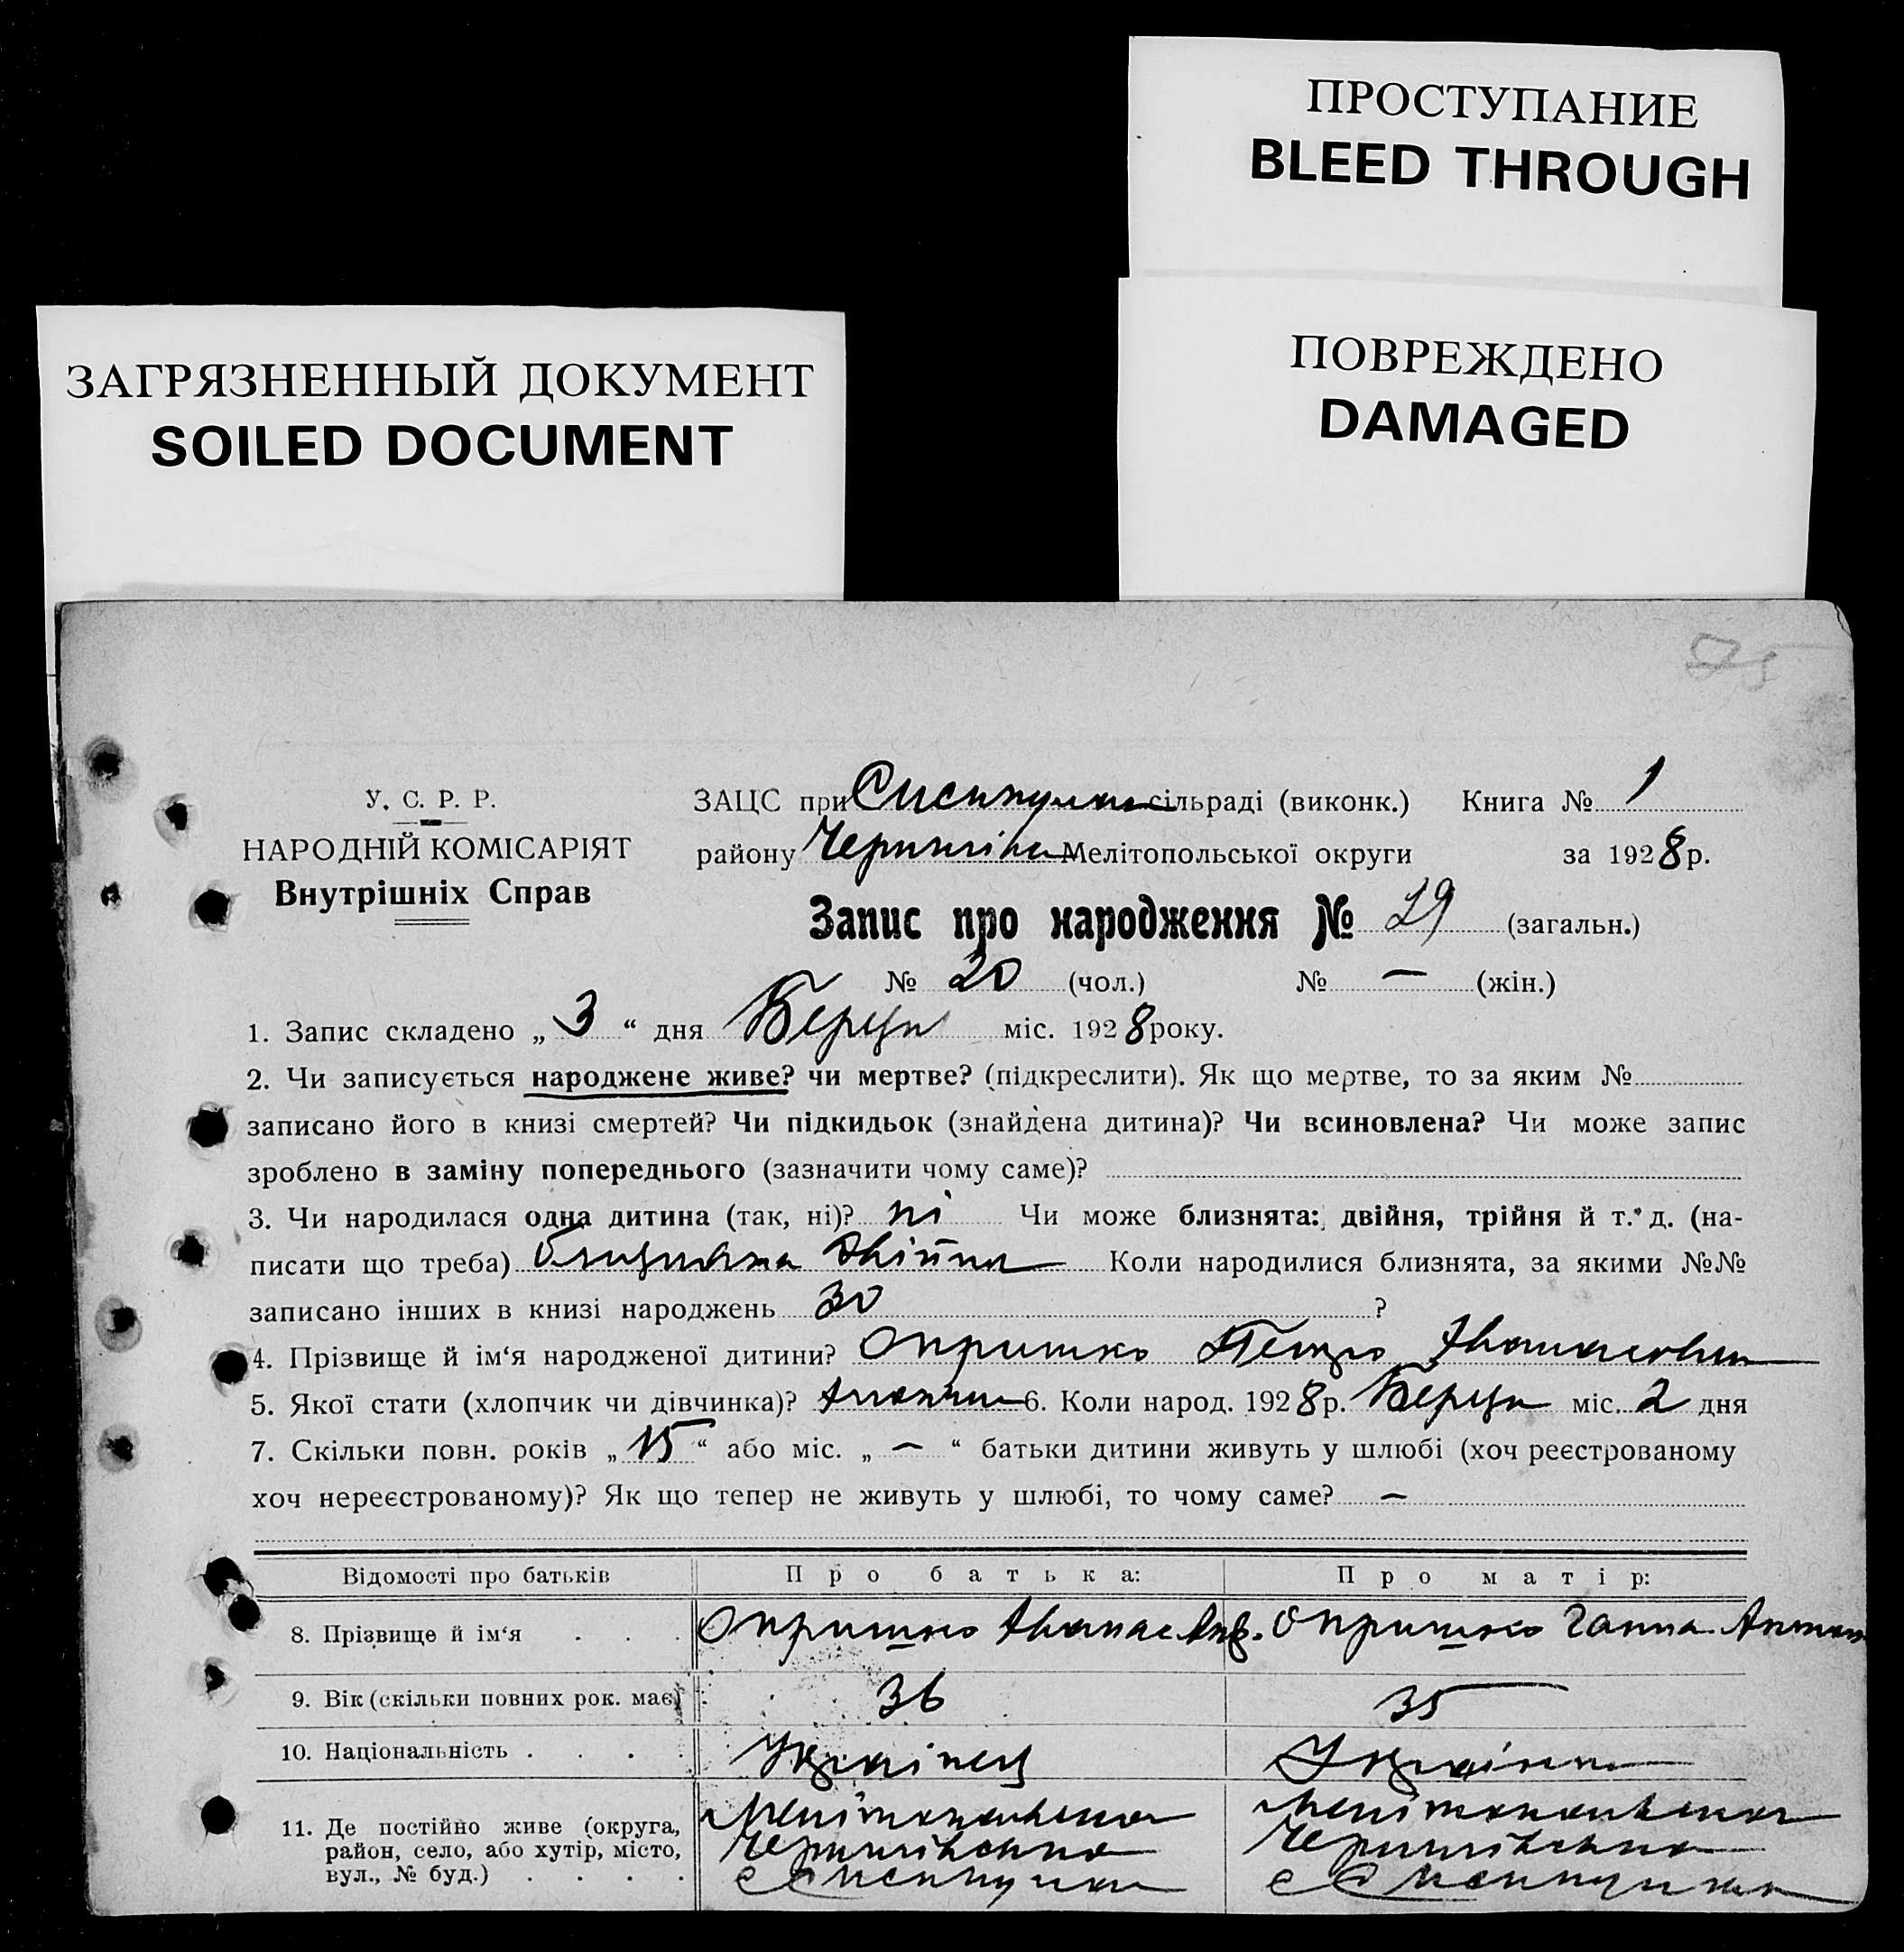 ПРОСТУПАНИЕ
BLEED THROUGH
ЗАГРЯЗНЕННЫЙ ДОКУМЕНТ
SOILED DOCUMENT
ПОВРЕЖДЕНО
DAMAGED
75
У. С. Р. Р.
НАРОДНІЙ КОМІСАРІЯТ
Внутрішніх Справ
ЗАЦС при сільраді (виконк.) Книга № 1
району Мелітопольської округи за 1928 р.
Запис про народження № 29 (загальн.)
№ 20 (чол.) № — (жін.)
1. Запис складено „ 3 “ дня Березн міс. 1928 року.
2. Чи записується народжене живе? чи мертве? (підкреслити). Як що мертве, то за яким №
записано його в книзі смертей? Чи підкидьок (знайдена дитина)? Чи всиновлена? Чи може запис
зроблено в заміну попереднього (зазначити чому саме)?
3. Чи народилася одна дитина (так, ні)? ні Чи може близнята: двійня, трійня й т. д. (на-
писати що треба) близнята двійня Коли народилися близнята, за якими №№
записано інших в книзі народжень 30 ?
4. Прізвище й ім‘я народженої дитини? Опришко Петро Афанасович
5. Якої стати (хлопчик чи дівчинка)? хлопчик 6. Коли народ. 1928 р. Березн міс. 2 дня
7. Скільки повн. років „ 15 “ або міс. „ — “ батьки дитини живуть у шлюбі (хоч реєстрованому
хоч нереєстрованому)? Як що тепер не живуть у шлюбі, то чому саме? —
Відомості про батьків Про батька: Про матір:
8. Прізвище й ім‘я . . . Опришко Афанас Опришко Ганна
9. Вік (скільки повних рок. має) 36 35
10. Національність . . . . Українец Українка
11. Де постійно живе (округа, Мелітопольська Мелітопольська
район, село, або хутір, місто, Чернигівська Чернигівська
вул., № буд.) . . . . с